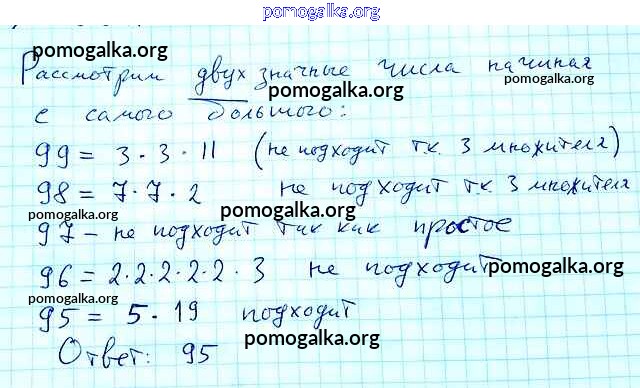 pomogalka.org
pomogalka.org
Рассмотрим двухзначные числа начиная
pomogalka.org
pomogalka.org
с самого большого:
99 = 3 · 3 · 11 (не подходит т.к. 3 множителя)
98 = 7 · 7 · 2 не подходит т.к. 3 множителя
pomogalka.org
pomogalka.org
97 – не подходит так как простое
96 = 2 · 2 · 2 · 2 · 2 · 3 не подходит
pomogalka.org
pomogalka.org
95 = 5 · 19 подходит
pomogalka.org
Ответ: 95
pomogalka.org